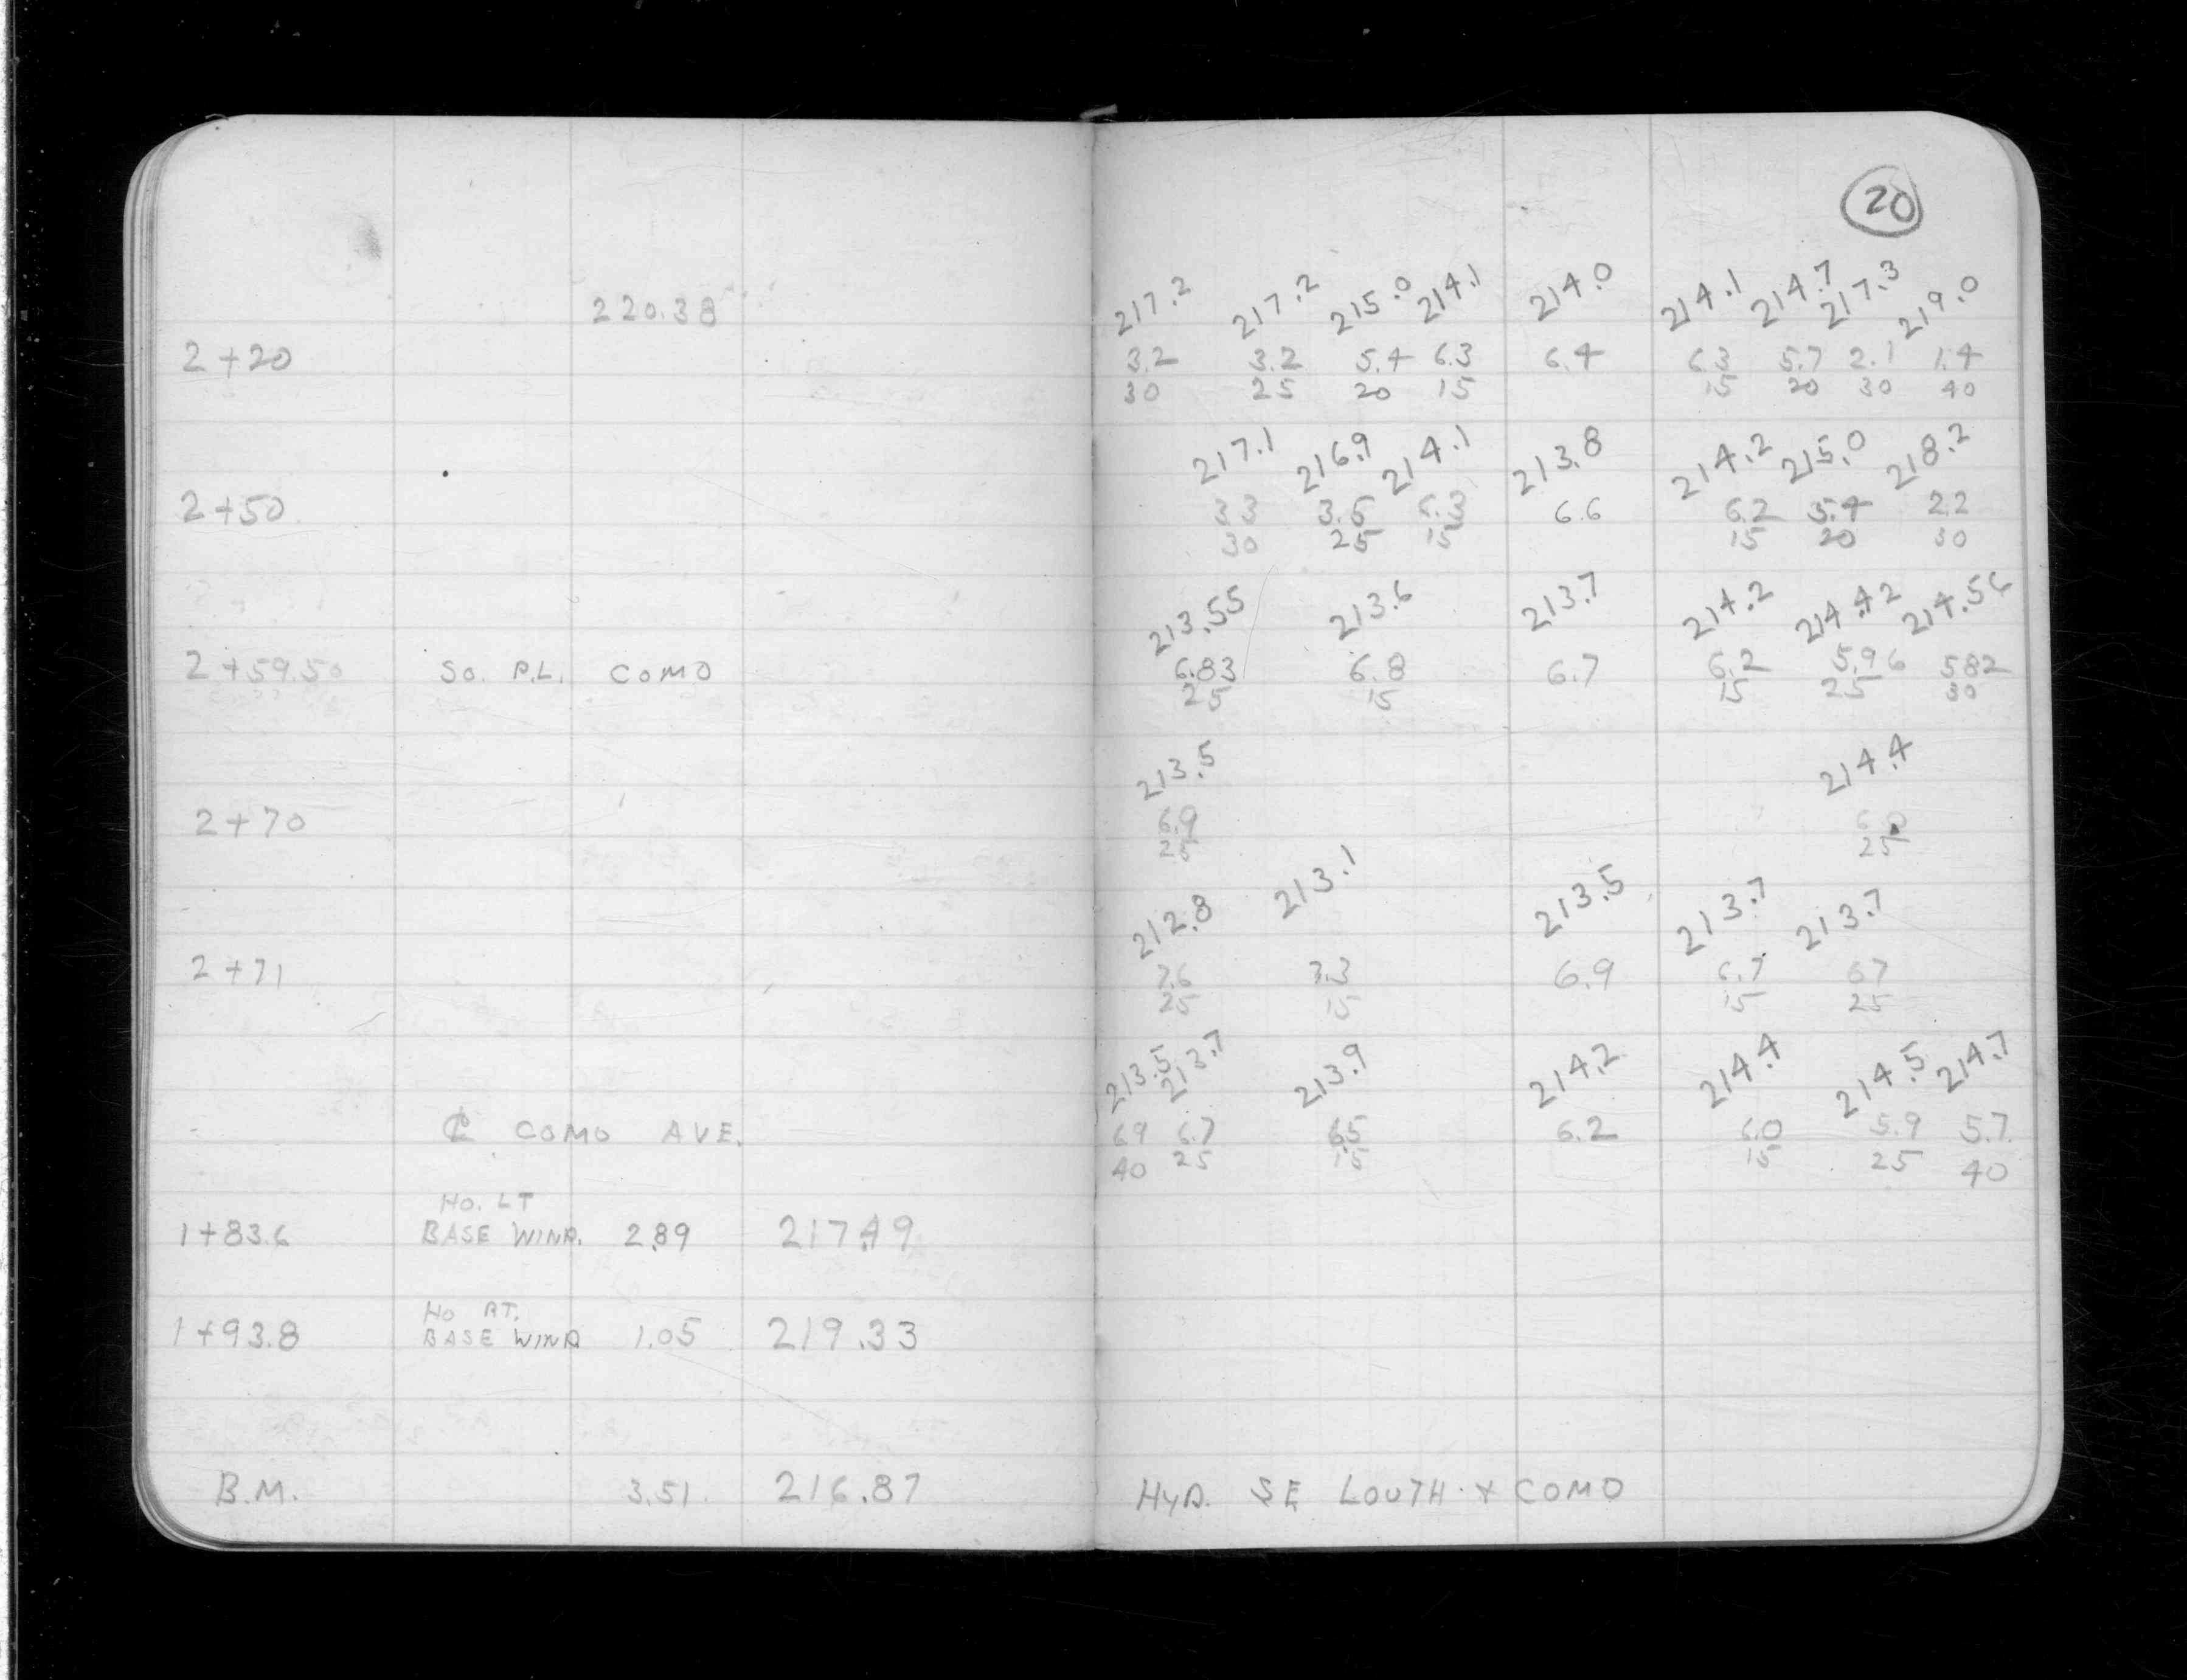 20
220.38
217.2 217.2 215.0 214.1 214.0 214.1 214.7 217.3 219.0
2+20 3.2 3.2 5.4 6.3 6.4 6.3 5.7 2.1 1.4
30 25 20 15 15 20 30 40
217.1 216.9 214.1 213.8 214.2 215.0 218.2
2+50 3.3 3.5 6.3 6.6 6.2 5.4 2.2
30 25 15 15 20 30
213.55 213.6 213.7 214.2 214.42 214.56
2+59.50 SO. P.L. COMO 6.83 6.8 6.7 6.2 5.96 5.82
25 15 15 25 30
213.5 214.4
2+70 6.9 6.0
25 25
212.8 213.1 213.5 213.7 213.7
2+71 7.6 7.3 6.9 6.7 6.7
25 15 15 25
213.5 213.7 213.9 214.2 214.4 214.5 214.7
℄ COMO AVE. 6.9 6.7 6.5 6.2 6.0 5.9 5.7
40 25 15 15 25 40
HO. LT
1+83.6 BASE WIND. 2.89 217.49
HO RT.
1+93.8 BASE WIND 1.05 219.33
B.M. 3.51 216.87 HYD. SE LOUTH + COMO